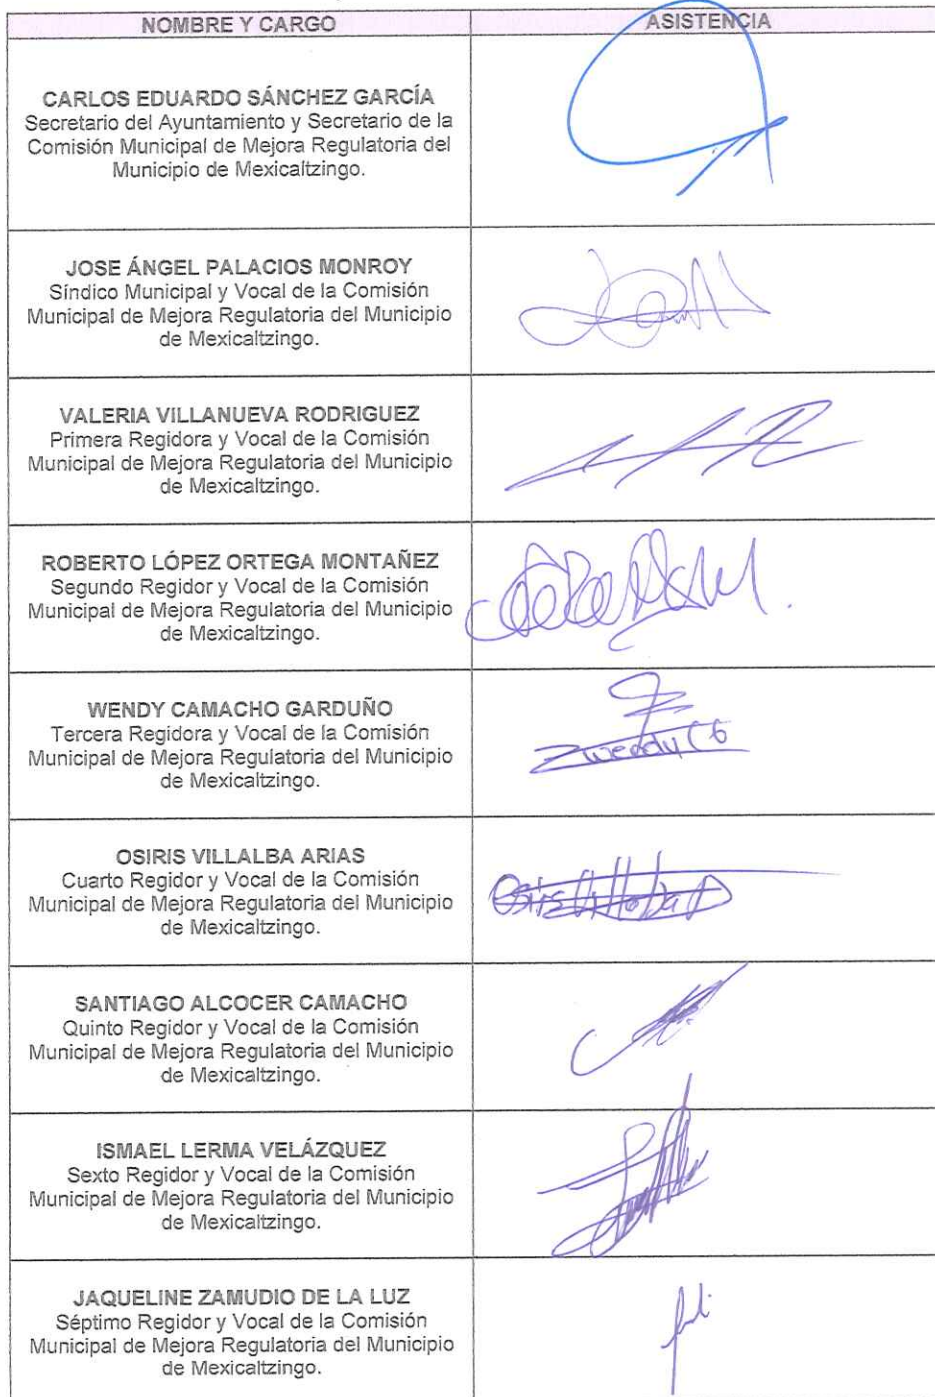 NOMBRE Y CARGO
ASISTENCIA
CARLOS EDUARDO SÁNCHEZ GARCÍA
Secretario del Ayuntamiento y Secretario de la
Comisión Municipal de Mejora Regulatoria del
Municipio de Mexicaltzingo.
JOSE ÁNGEL PALACIOS MONROY
Síndico Municipal y Vocal de la Comisión
Municipal de Mejora Regulatoria del Municipio
de Mexicaltzingo.
VALERIA VILLANUEVA RODRIGUEZ
Primera Regidora y Vocal de la Comisión
Municipal de Mejora Regulatoria del Municipio
de Mexicaltzingo.
ROBERTO LÓPEZ ORTEGA MONTAÑEZ
Segundo Regidor y Vocal de la Comisión
Municipal de Mejora Regulatoria del Municipio
de Mexicaltzingo.
WENDY CAMACHO GARDUÑO
Tercera Regidora y Vocal de la Comisión
Municipal de Mejora Regulatoria del Municipio
de Mexicaltzingo.
OSIRIS VILLALBA ARIAS
Cuarto Regidor y Vocal de la Comisión
Municipal de Mejora Regulatoria del Municipio
de Mexicaltzingo.
SANTIAGO ALCOCER CAMACHO
Quinto Regidor y Vocal de la Comisión
Municipal de Mejora Regulatoria del Municipio
de Mexicaltzingo.
ISMAEL LERMA VELÁZQUEZ
Sexto Regidor y Vocal de la Comisión
Municipal de Mejora Regulatoria del Municipio
de Mexicaltzingo.
JAQUELINE ZAMUDIO DE LA LUZ
Séptimo Regidor y Vocal de la Comisión
Municipal de Mejora Regulatoria del Municipio
de Mexicaltzingo.